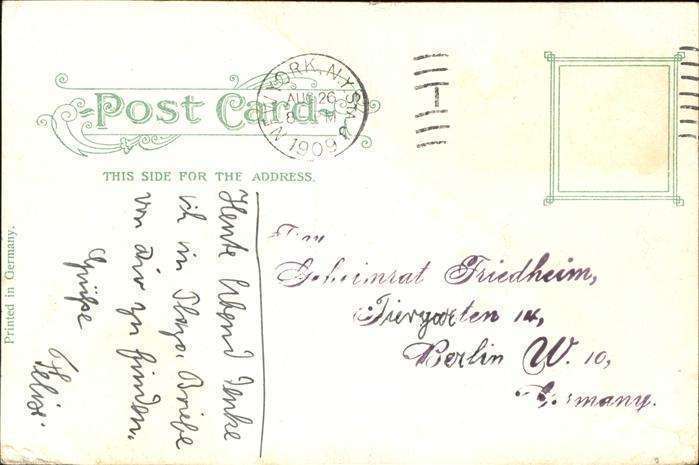 Post Card
NEW YORK, N.Y. STA. U
AUG 26
8 M
1909
1
THIS SIDE FOR THE ADDRESS.
Heute Abend denke
ich in Plaza Briefe
von Dir zu finden.
Grüße
Felix.
Geheimrat Friedheim,
Tiergarten 14,
Berlin W. 10,
Germany.
Printed in Germany.